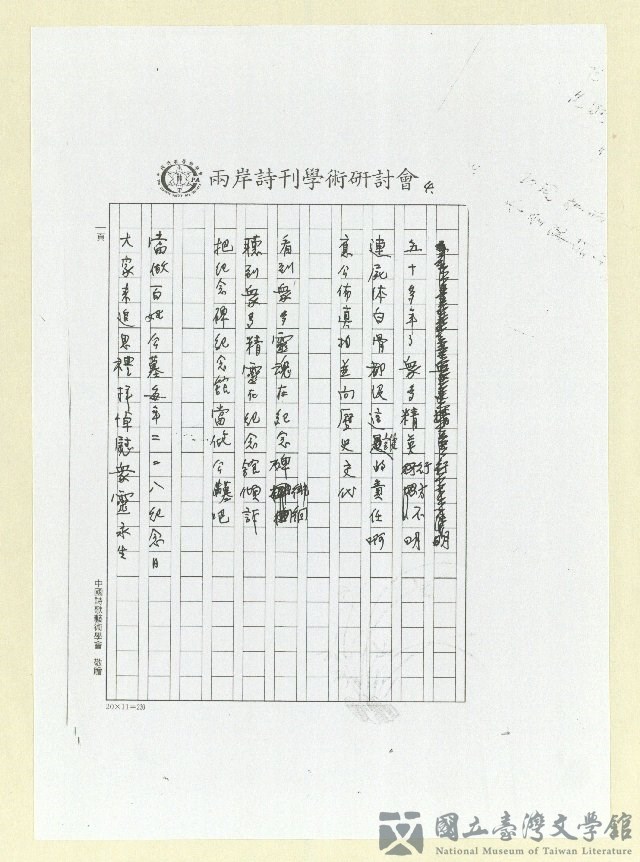 兩岸詩刊學術研討會
五十多年了眾多精英行方不明
連屍体白骨都沒這是誰的責任啊
應公佈真相並向歷史交代
看到眾多靈魂在紀念碑徘徊
聽到眾多精靈在紀念館傾訴
把紀念碑紀念館當做公墓吧
當做百姓公墓每年二二八紀念日
大家來追思禮拜悼慰眾靈永生
頁
中國詩歌藝術學會 敬贈
20×11=220
國立臺灣文學館
National Museum of Taiwan Literature